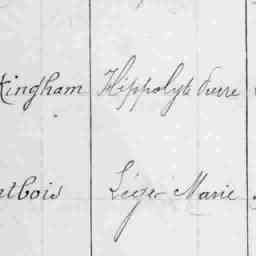 kingham Hippolyte Pierre
tbois Léger Marie